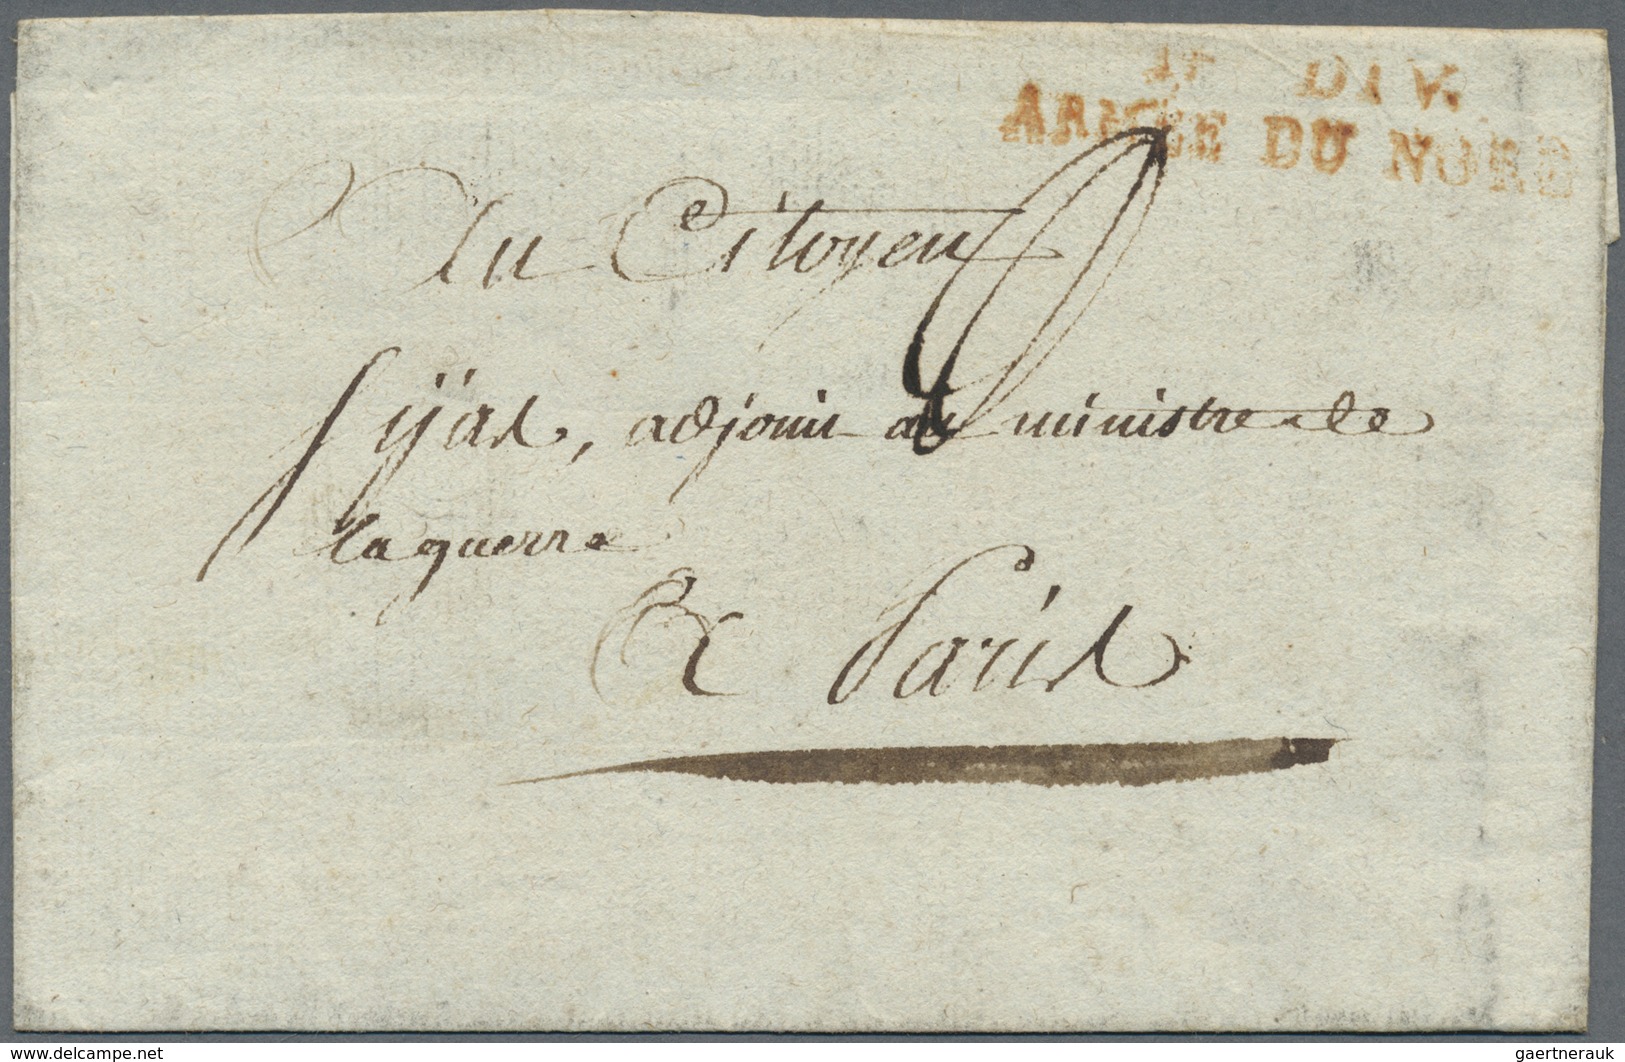 1e DIV.
ARMÉE DU NORD
Au Citoyen
Sijas, adjoint au ministre de
la guerre
a Paris
delcampe.net
gaertnerauk